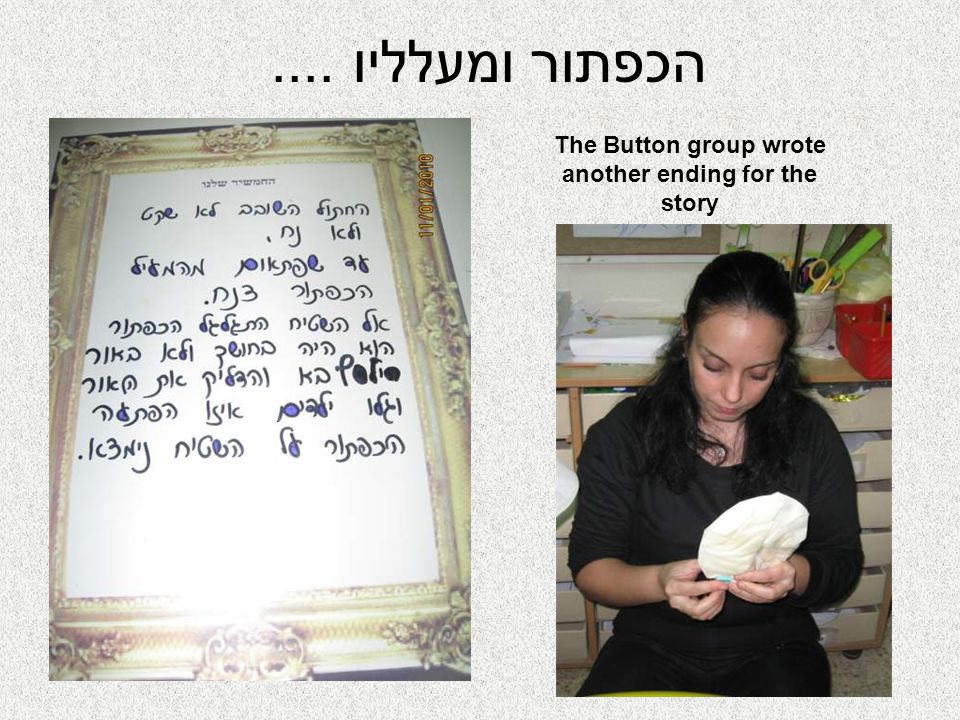 הכפתור ומעלליו ....
The Button group wrote
another ending for the
story
החמשיר שלנו
החתול השובב לא שקט
ולא נח.
עד שפתאום מהמעיל
הכפתור צנח.
אל השטיח התגלגל הכפתור
הוא היה בחושך ולא באור
בא והדליק את האור
וגלו ילדים איזו הפתעה
הכפתור על השטיח נימצא.
11/01/2010